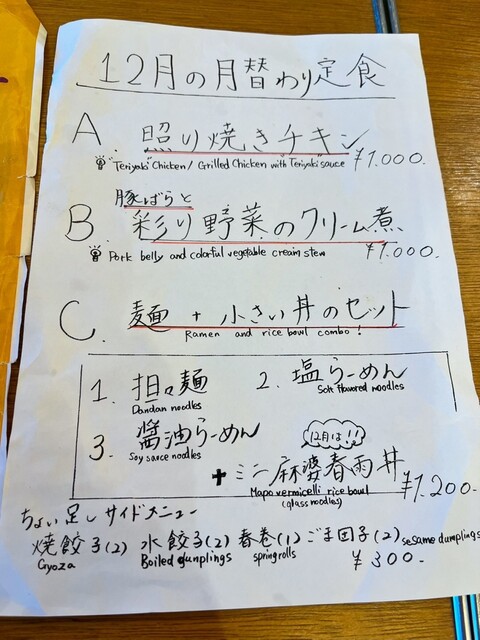 12月の月替わり定食
A. 照り焼きチキン
"Teriyaki" Chicken / Grilled Chicken with Teriyaki sauce ¥1.000.
豚ばらと
B. 彩り野菜のクリーム煮
Pork belly and colorful vegetable cream stew ¥1.000.
C. 麺 + 小さい丼のセット
Ramen and rice bowl combo!
1. 担々麺 2. 塩らーめん
Dandan noodles Salt flavored noodles
3. 醤油らーめん 12月は!!
Soy sauce noodles
+ ミニ麻婆春雨丼
Mapo vermicelli rice bowl ¥1.200.
(glass noodles)
ちょい足しサイドメニュー
焼餃子(2) 水餃子(2) 春巻(1) ごま団子(2) sesame dumplings
Gyoza Boiled dumplings spring rolls ¥300.